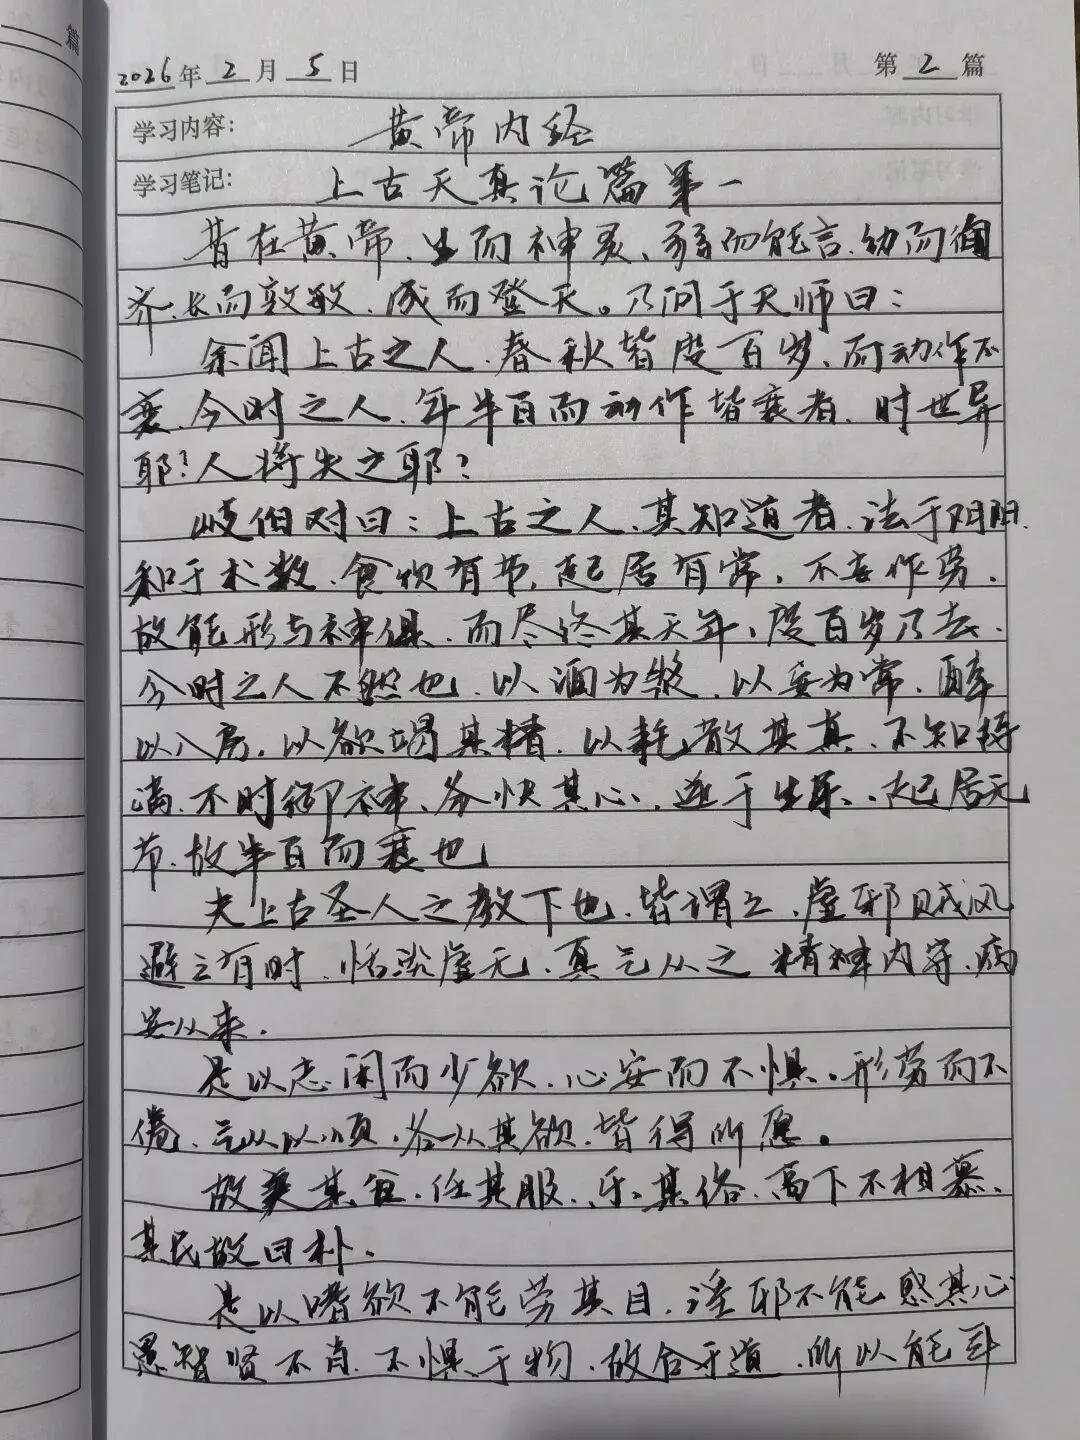 篇
2026年2月5日 第2篇
学习内容： 黄帝内经
学习笔记： 上古天真论篇第一
昔在黄帝、生而神灵、弱而能言、幼而徇
齐、长而敦敏、成而登天。乃问于天师曰：
余闻上古之人、春秋皆度百岁、而动作不
衰、今时之人、年半百而动作皆衰者、时世异
耶？人将失之耶？
岐伯对曰：上古之人、其知道者、法于阴阳、
和于术数、食饮有节、起居有常，不妄作劳、
故能形与神俱、而尽终其天年、度百岁乃去、
今时之人不然也、以酒为浆、以妄为常、醉
以入房，以欲竭其精、以耗散其真、不知持
满、不时御神、务快其心、逆于生乐、起居无
节、故半百而衰也
夫上古圣人之教下也、皆谓之、虚邪贼风
避之有时、恬淡虚无、真气从之 精神内守、病
安从来、
是以志闲而少欲、心安而不惧。形劳而不
倦、气从以顺，各从其欲、皆得所愿。
故美其食、任其服、乐其俗、高下不相慕、
其民故曰朴。
是以嗜欲不能劳其目、淫邪不能惑其心
愚智贤不肖、不惧于物、故合于道、所以能